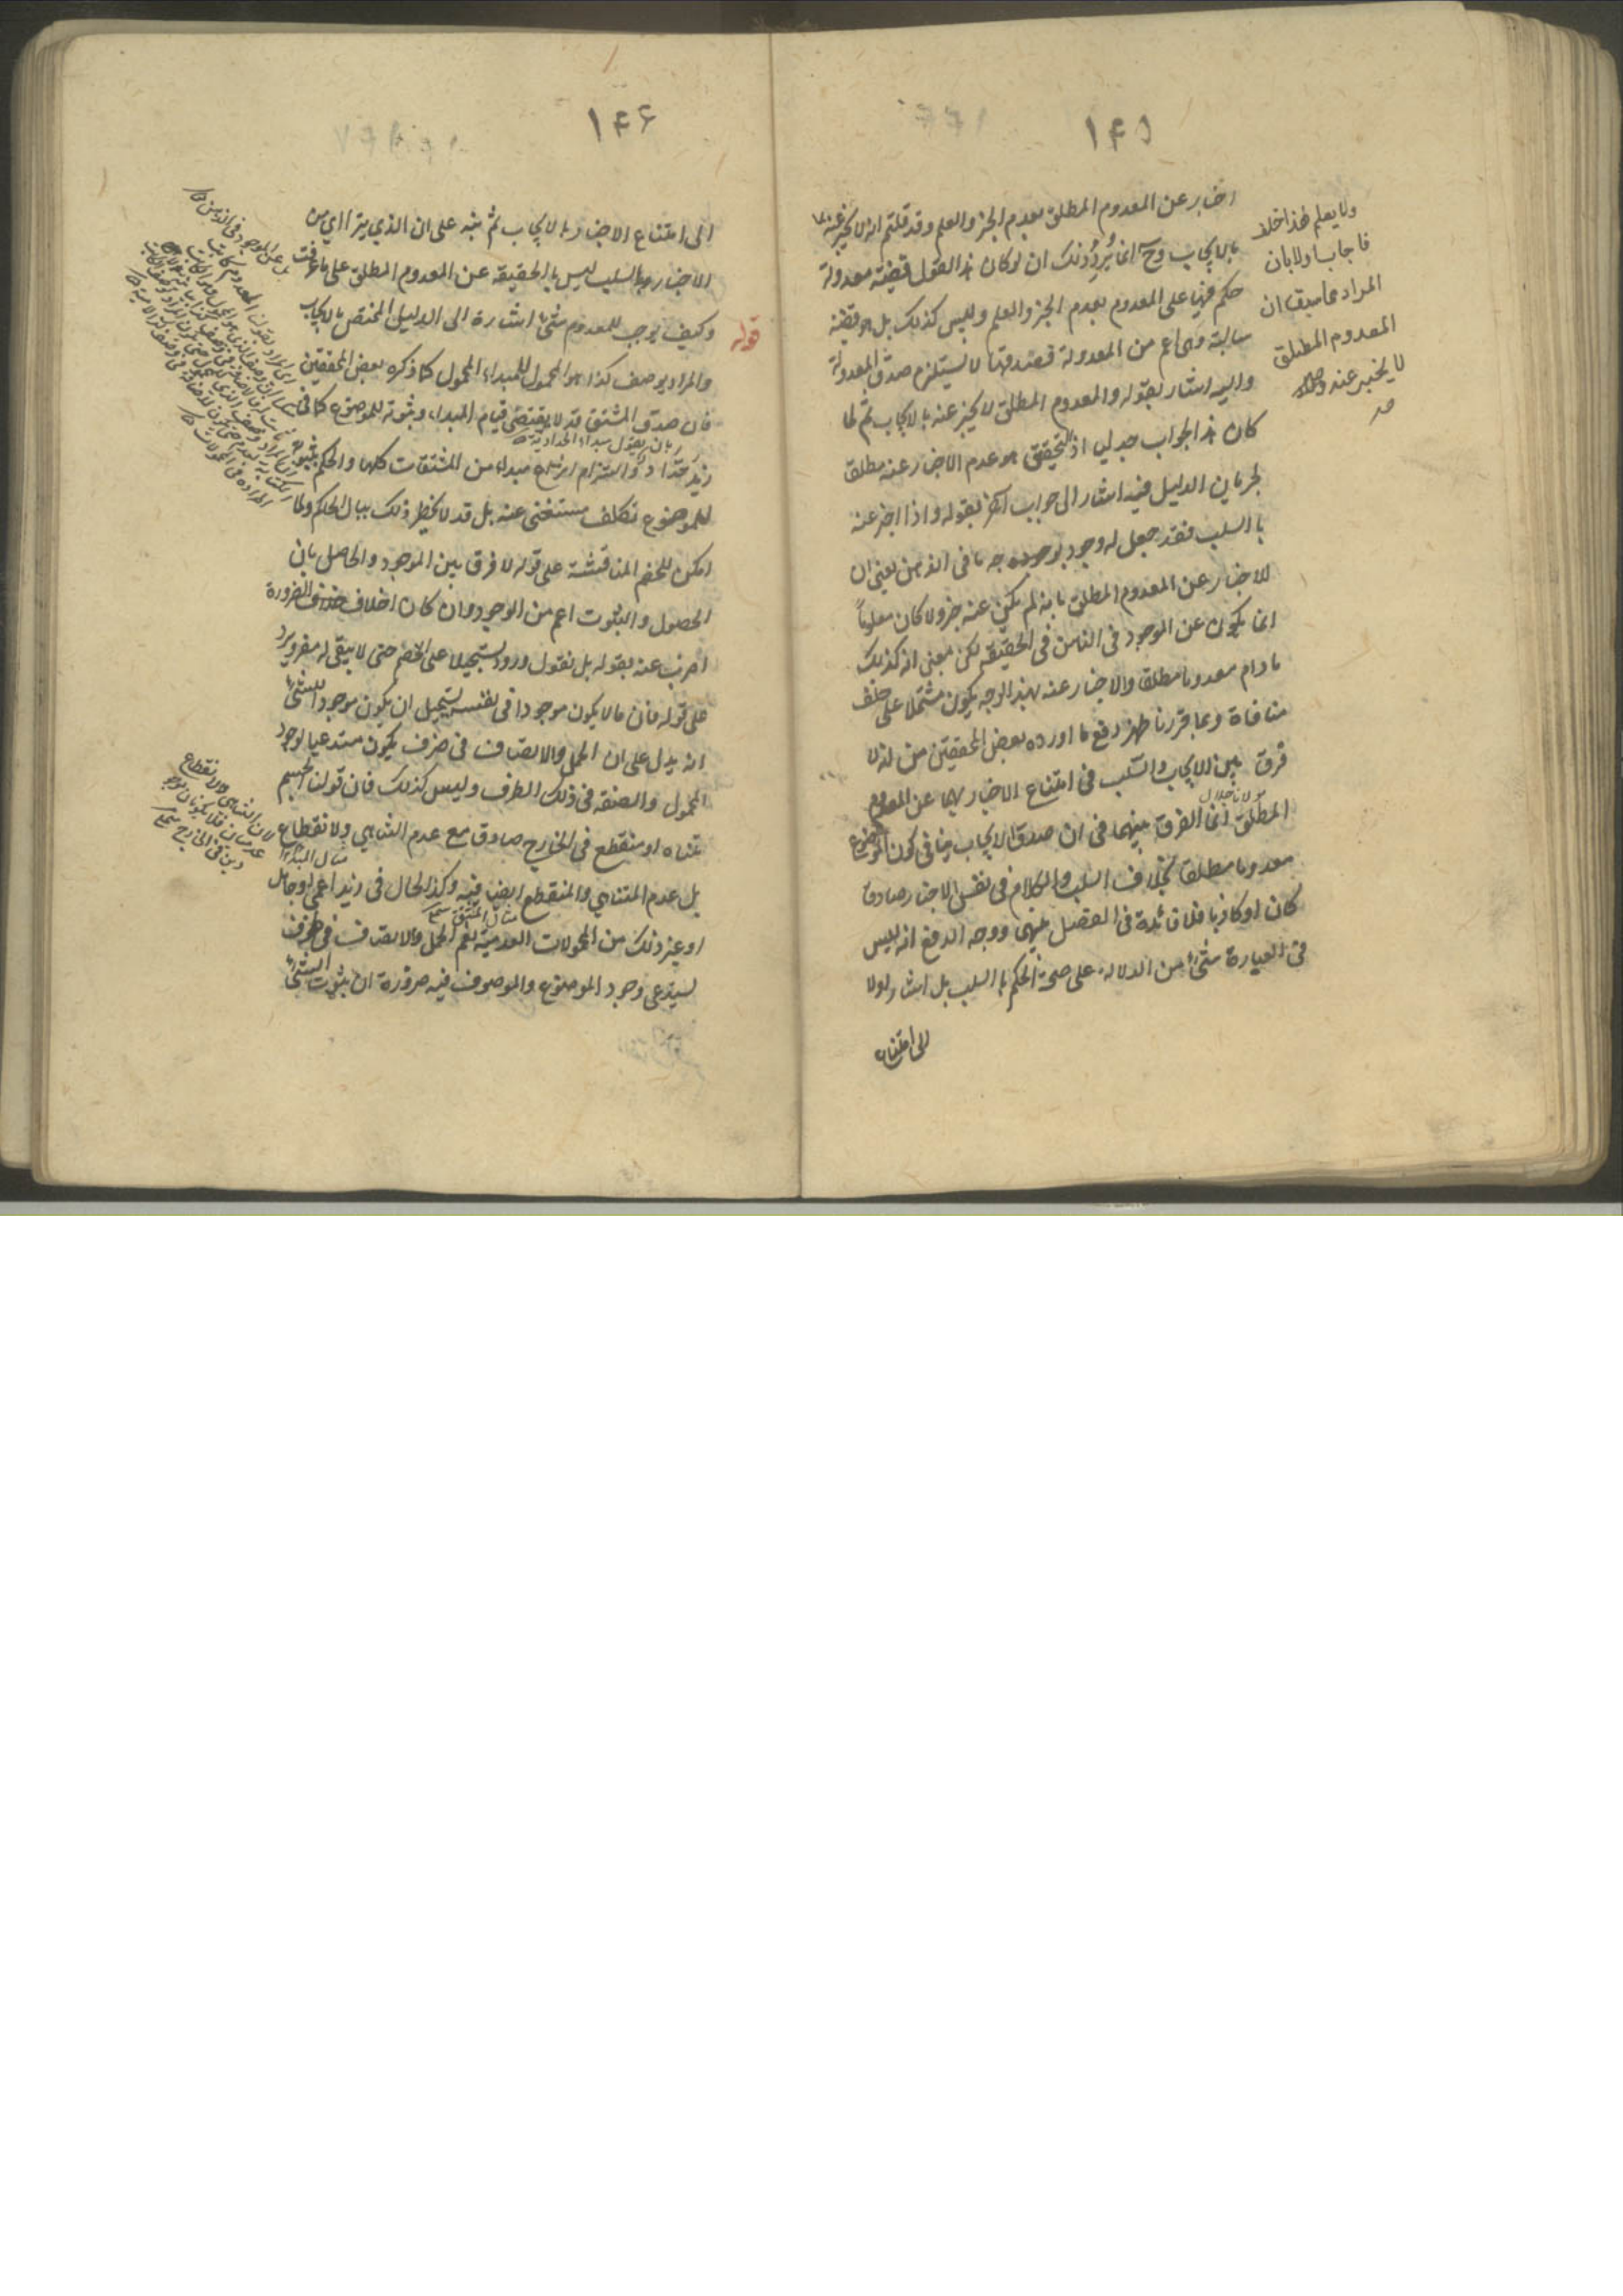 ۱۴۵
اخبار عن المعدوم المطلق بعدم الخبر والعلم وقد قلتم انه لا يخبر عنه
بالايجاب وح انما يرد ذلك ان لو كان هذا القول قضية معدولة
حكم فيها على المعدوم بعدم الخبر والعلم وليس كذلك بل هو قضية
سالبة وهى اعم من المعدولة فصدقها لا يستلزم صدق المعدولة
واليه اشار بقوله والمعدوم المطلق لا يخبر عنه بالايجاب ثم لما
كان هذا الجواب جدلى اذ التحقيق هو عدم الاخبار عنه مطلقا
لجريان الدليل فيه اشار الى جواب آخر بقوله واذا اخبر عنه
بالسلب فقد جعل له وجود بوجه ما فى الذهن يعنى ان
الاخبار عن المعدوم المطلق بانه لم يكن عنه خبر ولا كان معلوماً
انما يكون عن الموجود فى الذهن فى الحقيقة لكن معنى انه كذلك
ما دام معدوما مطلقا والاخبار عنه بهذا الوجه يكون مشتملا على خلف
منافاة وبما قررنا ظهر دفع ما اورده بعض المحققين من انه لا
فرق بين الايجاب والسلب فى امتناع الاخبار بهما عن المعدوم
مولانا جلال
المطلق انما الفرق بينهما فى ان صدق الايجاب ينافى كون الموضوع
معدوما مطلقا بخلاف السلب والكلام فى نفس الاخبار صادقا
كان او كاذبا فلا فائدة فى الفصل بينهما ووجه الدفع انه ليس
فى العبارة شئ من الدلالة على صحة الحكم بالسلب بل اشار اولا
الى امتناع
ولا يعلم هذا خلف
فاجاب اولا بان
المراد مما سبق ان
المعدوم المطلق
لا يخبر عنه
۱۴۶
الى امتناع الاخبار بالايجاب ثم نبه على ان الذي يترااى من
الاخبار بالسلب ليس بالحقيقة عن المعدوم المطلق على ما عرفت
قوله
وكيف يوجب للمعدوم شئ اشارة الى الدليل المختص بالايجاب
والمراد بوصف كذا هو المحمول للمبداء المحمول كما ذكره بعض المحققين
فان صدق المشتق قد لا يقتضى قيام المبداء وثبوته للموضوع كما فى
زيد حداد والتزام انتزاع مبداء من المشتقات كلها والحكم بثبوته
للموضوع تكلف مستغنى عنه بل قد لا يخطر ذلك ببال الحاكم ولما
امكن للخصم المناقشة على قوله لا فرق بين الموجود والحاصل بان
الحصول والثبوت اعم من الوجود وان كان خلاف الضرورة
اضرب عنه بقوله بل نقول ورود تسجيلا على الخصم حتى لا يبقى له مفر ويرد
على قوله فان ما لا يكون موجودا فى نفسه يستحيل ان يكون موجودا للشئ
انه يدل على ان الحمل والاتصاف فى ظرف يكون مستدعيا لوجود
المحمول والصفة فى ذلك الظرف وليس كذلك فان قولنا الجسم
متناه او منقطع فى الخارج صادق مع عدم التناهي والانقطاع
مثال المبداء
بل عدم المتناهي والمنقطع ايضا فيه وكذا الحال فى زيد اعمى او جاهل
مثال المشتق
او غير ذلك من المحمولات العدمية نعم الحمل والاتصاف فى ظرف
يستدعى وجود الموضوع والموصوف فيه ضرورة ان ثبوت الشئ
لان التناهى والانقطاع
عدميان فلا يكونان موجو
دين فى الخارج